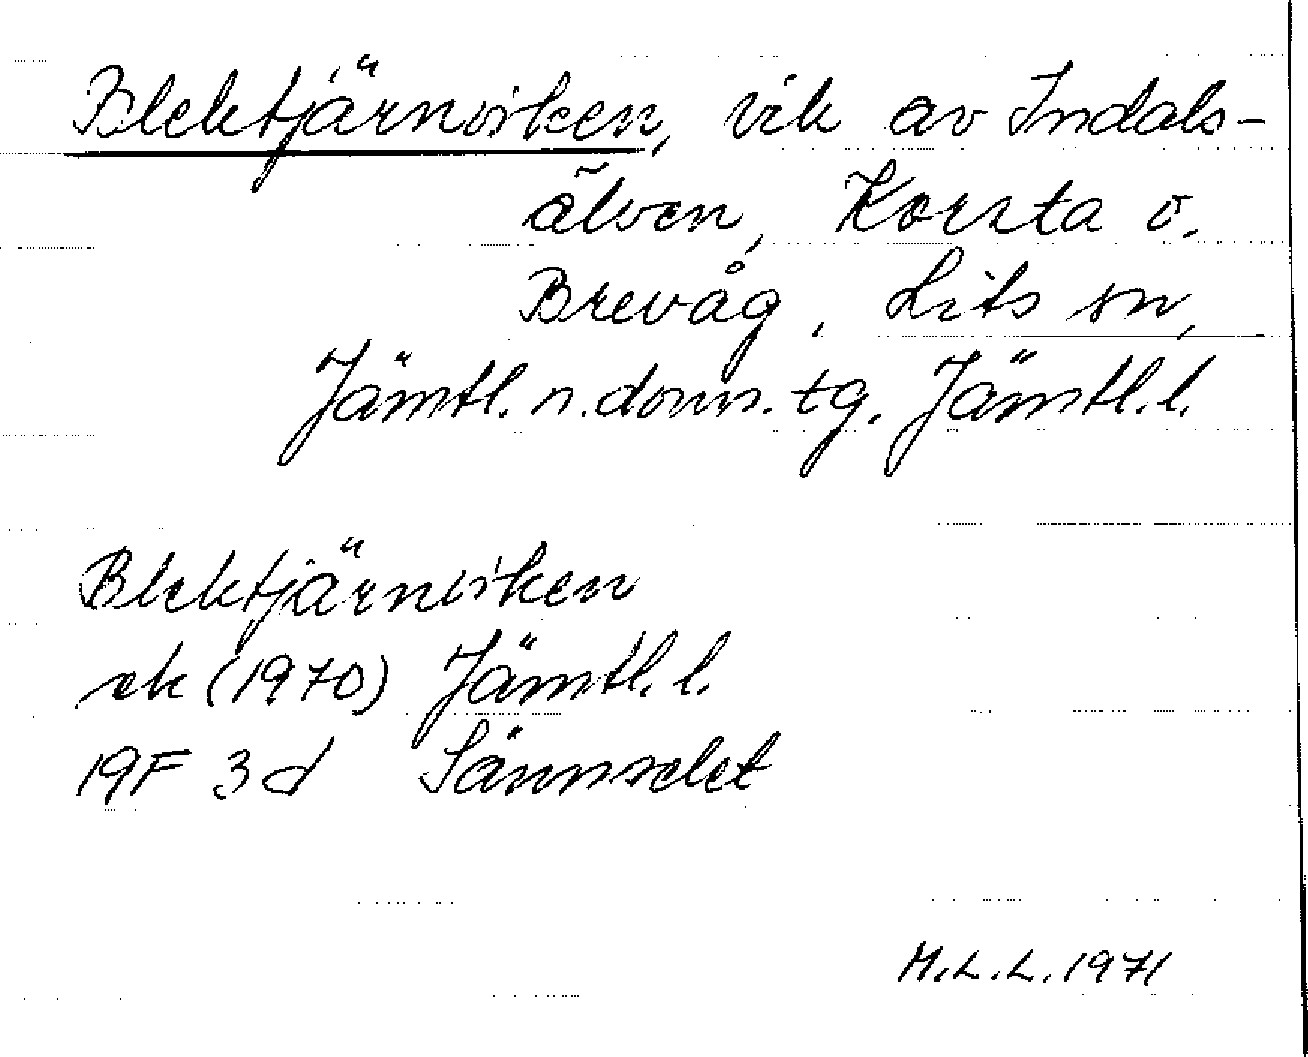 Blektjärnviken, vik av Indals-
älven, Korsta o.
Brevåg, Lits sn,
Jämtl. n. doms. tg. Jämtl. l.
Blektjärnviken
ek (1970) Jämtl. l.
19F 3d Sännselet
M.L.L. 1971